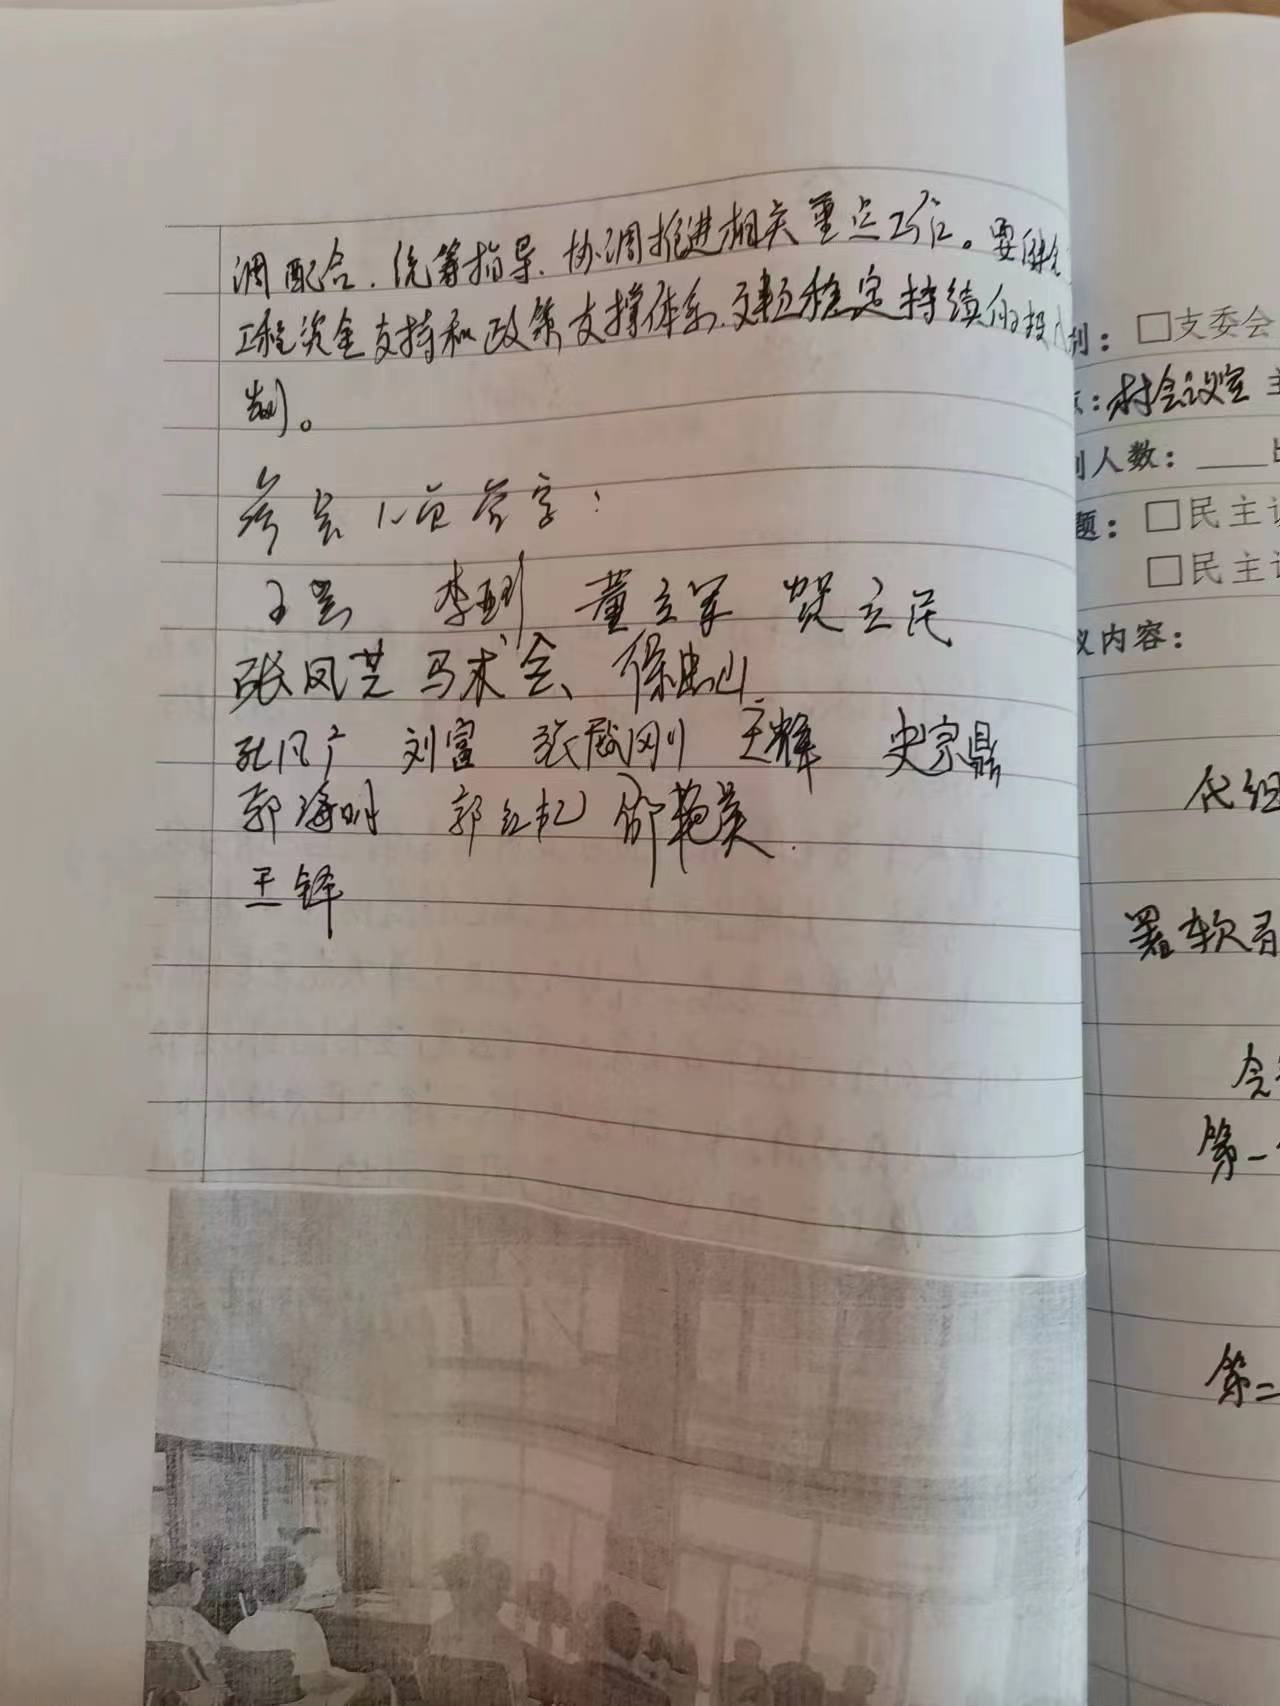 调配合、统筹指导、协调推进相关重点工作。要健全
工程资金支持和政策支撑体系,稳定持续的投
制。
参会人员签字:
王 李 董立军 贺立民
张凤芝 马术会 徐忠山
孔凡广 刘富 张成刚 王辉 史宗鼎
郭海明 郭红 邵艳英
王铎
别: □支委会
:村会议室 主
别人数:
题: □民主
□民主
议内容:
代组
署
会
第一
第二